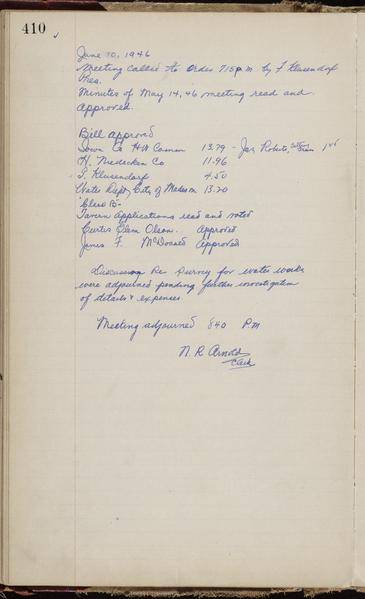 410
June 10, 1946
Meeting called to order 7 15 p m by F Klusendorf
Pres.
Minutes of May 14, 46 meeting read and
approved.
Bill approved
Town Co 13.79 - Jas Roberts,
H. Niedecken Co 11.96
F. Klusendorf 4.50
Water Dept, City of Madison 13.20
Class B-
Tavern Applications read and noted
Curtis Glenn Olson. Approved
James F. McDonald Approved
Discussion Re Survey for water works
were adjourned pending further investigation
of details & expenses
Meeting adjourned 8 40 P.M
N. R. Arnold
Clerk